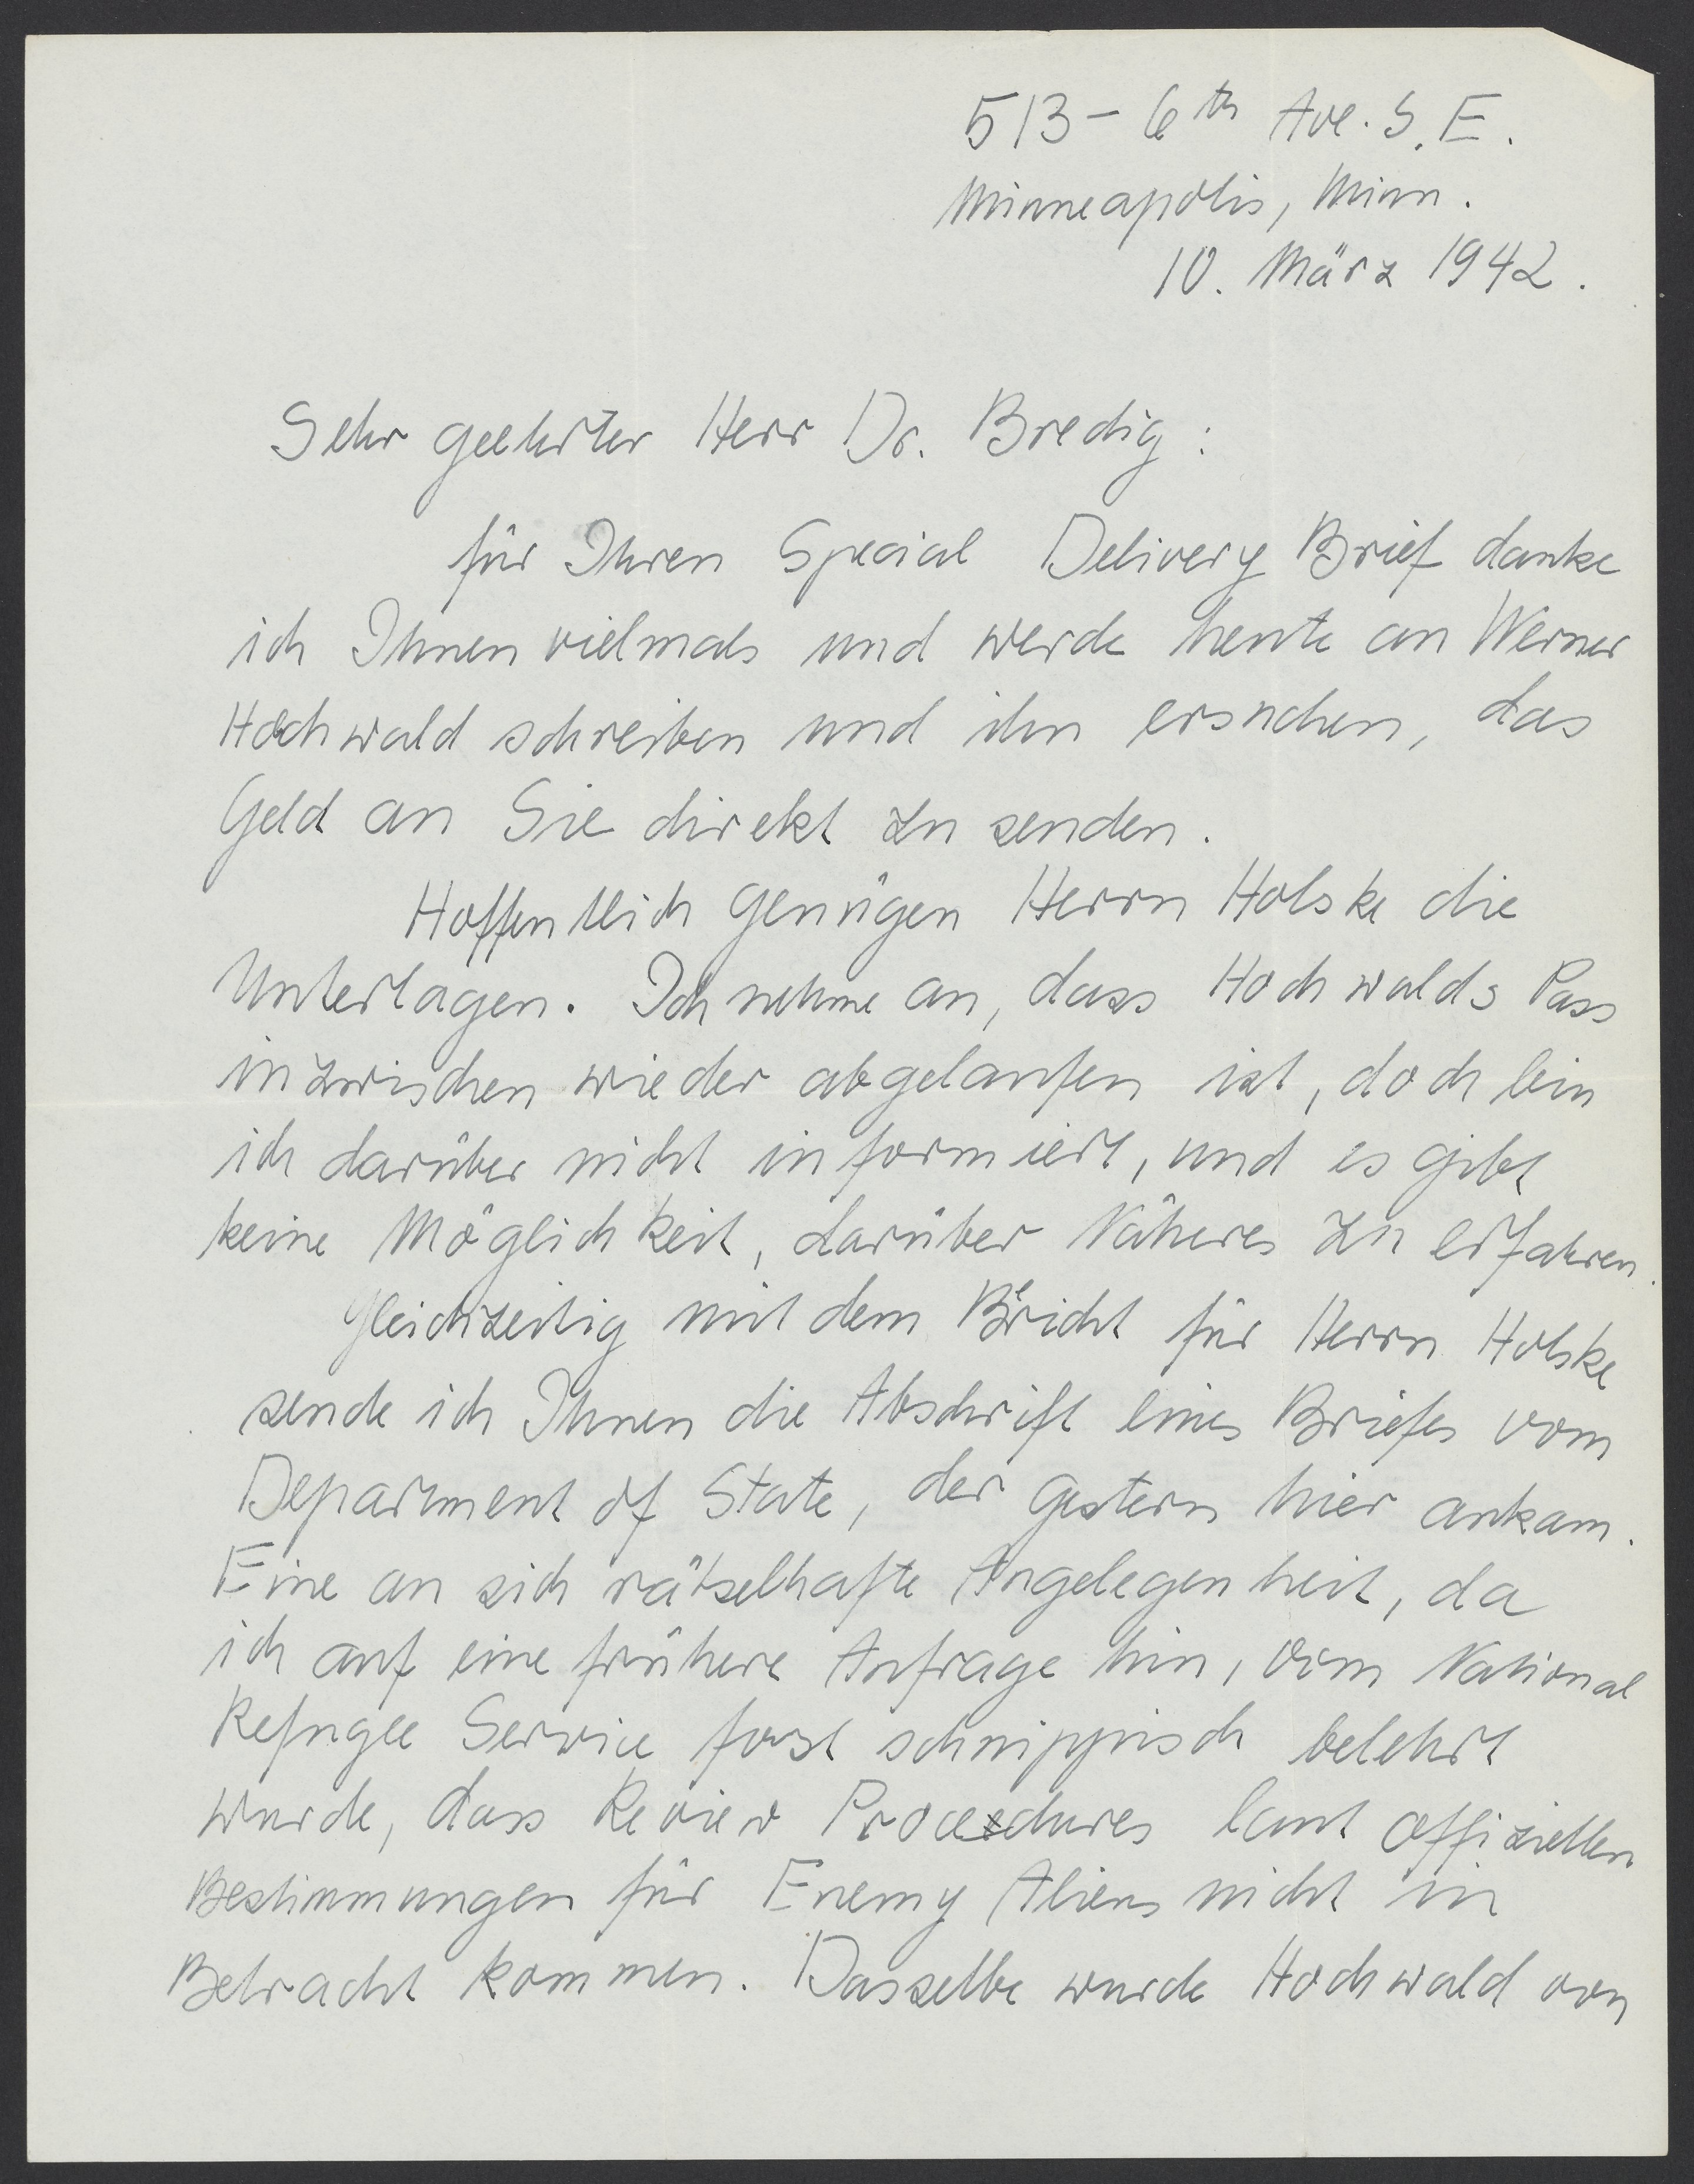 513 - 6th Ave. S. E.
Minneapolis, Minn.
10. März 1942.
Sehr geehrter Herr Dr. Bredig:
für Ihren Special Delivery Brief danke
ich Ihnen vielmals und werde heute an Werner
Hochwald schreiben und ihn ersuchen, das
Geld an Sie direkt zu senden.
Hoffentlich genügen Herrn Holske die
Unterlagen. Ich nehme an, dass Hochwalds Pass
inzwischen wieder abgelaufen ist, doch bin
ich darüber nicht informiert, und es gibt
keine Möglichkeit, darüber Näheres zu erfahren.
Gleichzeitig mit dem Bericht für Herrn Holske
sende ich Ihnen die Abschrift eines Briefes vom
Department of State, der gestern hier ankam.
Eine an sich rätselhafte Angelegenheit, da
ich auf eine frühere Anfrage hin, vom National
Refugee Service fast schnippisch belehrt
wurde, dass Review Procedures laut offiziellen
Bestimmungen für Enemy Aliens nicht in
Betracht kommen. Dasselbe wurde Hochwald von